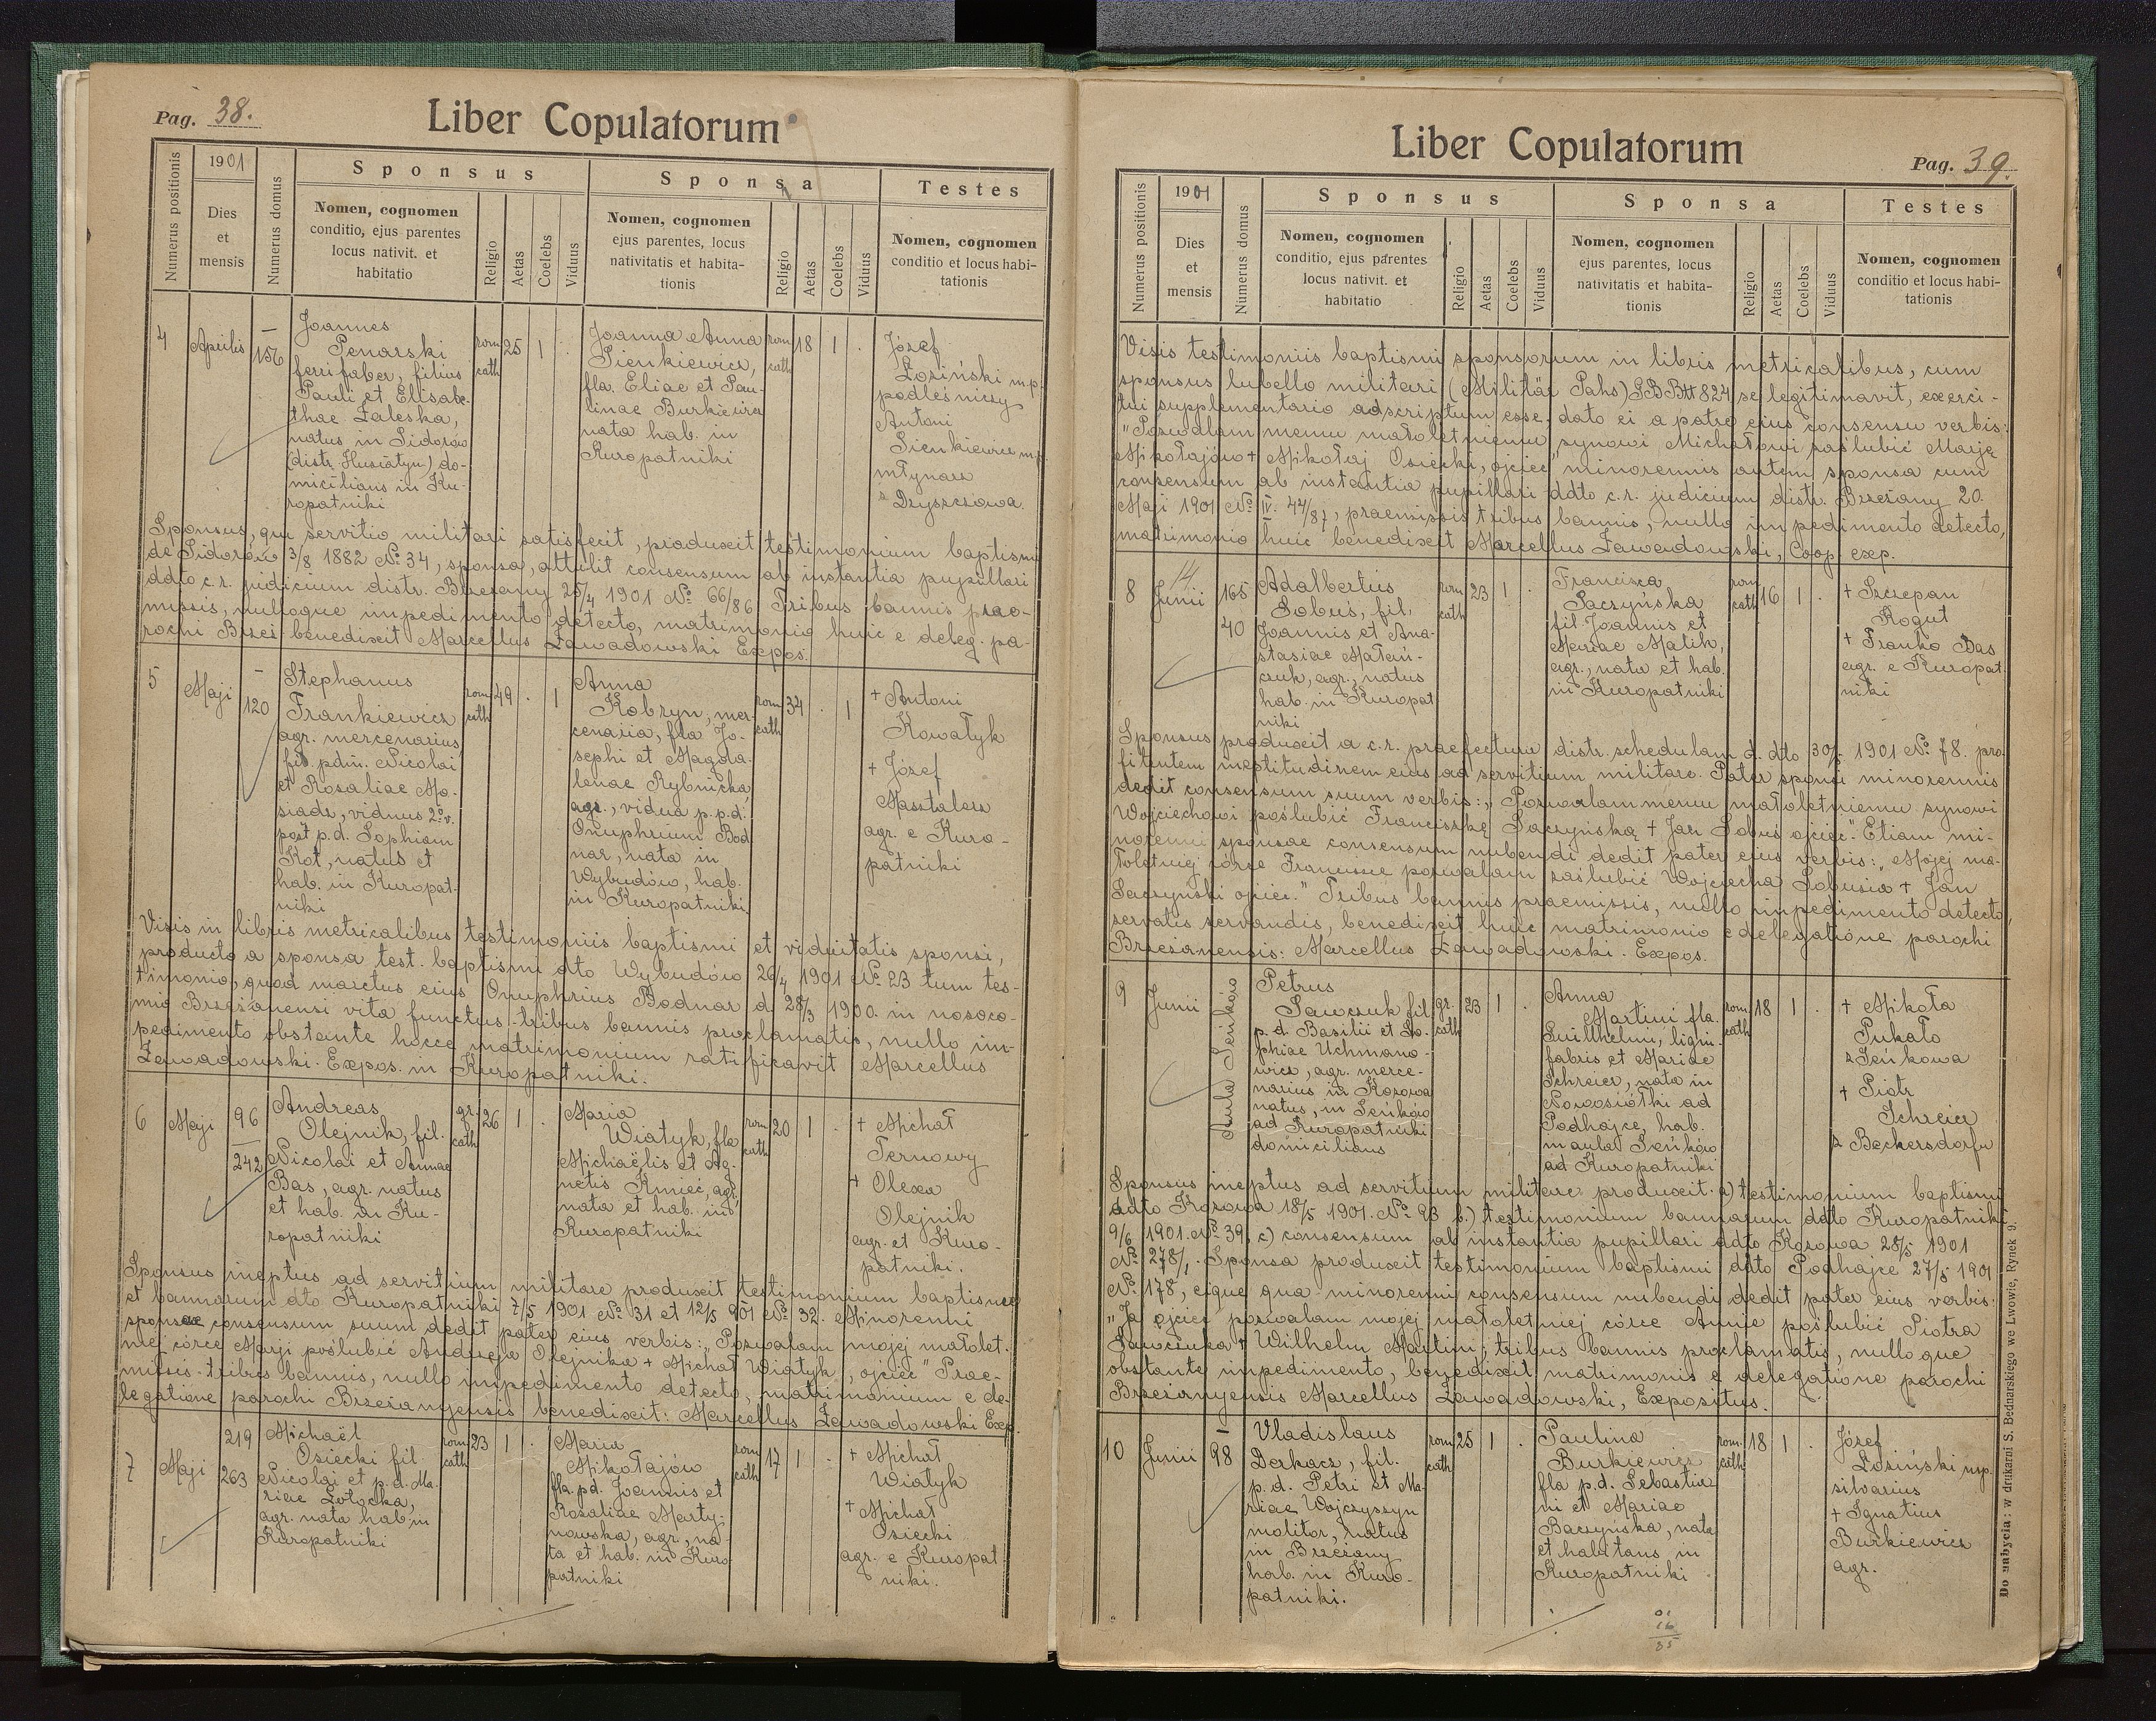 Pag. 38.
Liber Copulatorum
Numerus positionis
1901
Dies
et
mensis
Numerus domus
Sponsus
Nomen, cognomen
conditio, ejus parentes
locus nativit. et
habitatio
Religio
Aetas
Coelebs
Viduus
Sponsa
Nomen, cognomen
ejus parentes, locus
nativitatis et habita-
tionis
Religio
Aetas
Coelebs
Viduus
Testes
Nomen, cognomen
conditio et locus habi-
tationis
4
Aprilis
156
Joannes
Penarski
ferri faber, filius
Pauli et Elisabe-
thae Zaleska,
natus in Sidorów
(distr. Husiatyn) do-
micilians in Ku-
ropatniki
rom
cath
25
1
.
Joanna Anna
Sienkiewicz,
fla. Eliae et Pau-
linae Burkiewicz
nata hab. in
Kuropatniki
rom
cath
18
1
.
Józef
Łoziński m.p.
podleśniczy
Antoni
Sienkiewicz m.p.
młynarz
z Dryszczowa.
Sponsus, qui servitio militari satisfecit, produxit testimonium baptismi
de Sidorów 3/8 1882 No 34, sponsa, attulit consensum ab instantia pupillari
ddto c.r. judicium distr. Brzeżany 25/4 1901 No 66/86 Tribus bannis prae-
missis, nulloque impedimento detecto, matrimonio huic e deleg. pa-
rochi Brzeż. benedixit Marcellus Zawadowski Expos.
5
Maji
120
Stephanus
Frankiewicz
agr. mercenarius
fil. pdm. Nicolai
et Rosaliae Mo-
siadz, viduus 2o v.
post p.d. Sophiam
Kot, natus et
hab. in Kuropat-
niki
rom
cath
49
.
1
Anna
Kobryn, mer-
cenaria, fla Jo-
sephi et Magda-
lenae Rybnicka,
agr., vidua p. p.d.
Onuphrium Bod
nar, nata in
Wybudów, hab.
in Kuropatniki.
rom
cath
34
.
1
+ Antoni
Kowałyk
+ Józef
Masztalerz
agr. e Kuro-
patniki
Visis in libris metricalibus testimoniis baptismi et viduitatis sponsi,
producto a sponsa test. baptismi dto Wybudów 26/4 1901 No 23 tum tes-
timonio, quod maretus eius Onuphrius Bodnar d. 28/3 1900. in nosoco-
mio Brzeżanensi vita functus - tribus bannis proclamatis, nullo im-
pedimento obstante hocce matrimonium ratificavit Marcellus
Zawadowski. Expos. in Kuropatniki.
6
Maji
96
242
Andreas
Olejnik, fil.
Nicolai et Annae
Bas, agr. natus
et hab. in Ku-
ropatniki
gr.
cath
26
1
.
Maria
Wiatyk, fla
Michaëlis et Ag-
netis Kmieć, agr,
nata et hab. in
Kuropatniki
rom
cath
20
1
.
+ Michał
Ternowy
+ Olexa
Olejnik
agr. et Kuro-
patniki.
Sponsus ineptus ad servitium militare produxit testimonium baptismi
et bannorum dto. Kuropatniki 7/5 1901 No 31 et 12/5 901 No 32. Minorenni
sponsae consensum suum dedit pater eius verbis: „Pozwalam mojej małolet.
niej córce Marji poślubić Andrzeja Olejnika + Michał Wiatyk, ojciec" Prae-
missis - tribus bannis, nullo impedimento detecto, matrimonium e de-
legatione parochi Brzeżanyensis benedixit: Marcellus Zawadowski Exp.
7
Maji
219
263
Michaël
Osiecki fil.
Nicolai et p.d. Ma-
riae Łotocka,
agr. nata hab. in
Kuropatniki
rom
cath
23
1
.
Maria
Mikołajów
fla. pd. Joannis et
Rosaliae Marty-
nowska, agr., na-
ta et hab. in Kuro
patniki
rom
cath
17
1
.
+ Michał
Wiatyk
+ Michał
Osiecki
agr. e Kuropat
niki.
Liber Copulatorum
Pag. 39.
Numerus positionis
1901
Dies
et
mensis
Numerus domus
Sponsus
Nomen, cognomen
conditio, ejus parentes
locus nativit. et
habitatio
Religio
Aetas
Coelebs
Viduus
Sponsa
Nomen, cognomen
ejus parentes, locus
nativitatis et habita-
tionis
Religio
Aetas
Coelebs
Viduus
Testes
Nomen, cognomen
conditio et locus habi-
tationis
Visis testimoniis baptismi sponsorum in libris metricalibus, cum
sponsus lubello militari (Militär Pahs) 824 se legitimavit, exerci-
tui supplementario adscriptum esse, dato ei a patre eius consensu verbis:
„Pozwalam memu małoletniemu synowi Michałowi zaślubić Marję
Mikołajów + Mikołaj Osiecki, ojciec" minorennis autem sponsa cum
consensum ab instantia pupillari ddto c.r. judicium distr. Brzeżany 20.
Maji 1901 No IV. 44/87, praemissis tribus bannis, nullo impedimento detecto,
matrimonio huic benedixit Marcellus Zawadowski, Coop. exp.
8
14
Junii
165
40
Adalbertus
Sobuś, fil,
Joannis et Ana-
stasiae Mateń-
czuk, agr., natus
hab. in Kuropat
niki
rom
cath
23
1
.
Francisca
Saczyńska
fil. Joannis et
Mariae Matih,
agr., nata et hab.
in Kuropatniki
rom
cath
16
1
.
+ Szczepan
Kogut
+ Franko Bas
agr. e Kuropat-
niki
Sponsus produxit a c.r. praefectura distr. schedulam d. dto 30/5 1901 No 78. pro-
fitentem ineptitudinem eius ad servitium militare. Pater sponsi minorennis
dedit consensum suum verbis: „Pozwalam memu małoletniemu synowi
Wojciechowi poślubić Franciszkę Saczyńską + Jan Sobuś ojciec". Etiam mi-
norenni sponsae consensum nubendi dedit pater eius verbis: „Mojej ma-
łoletniej córce Francisze pozwalam zaślubić Wojciecha Sobusia + Jan
Saczyński ojciec." Tribus bannis praemissis, nullo impedimento detecto,
servatis servandis, benedixit huic matrimonio e delegatione parochi
Brzeżanensis: Marcellus Zawadowski. Expos.
9
Junii
Aula Seńków
Petrus
Sawczuk fil.
p. d. Basilii et So-
phiae Uchmano-
wicz, agr. merce-
narius in Kozowa
natus, in Seńków
ad Kuropatniki
domicilians
gr.
cath
23
1
.
Anna
Martini fla.
Guillhelmi, ligni-
fabris et Mariae
Schreier, nata in
Nowosiółki ad
Podhajce, hab.
in aula Seńków
ad Kuropatniki
rom
cath
18
1
.
+ Mikoła
Pukało
z Seńkowa
+ Piotr
Schreier
z Beckersdorfu
Sponsus ineptus ad servitium militare produxit: a) testimonium baptismi
ddto Kozowa 18/5 1901. No 93 b.) testimonium bannorum ddto Kuropatniki
9/6 1901. No 39, c) consensum ab instantia pupillari ddto Kozowa 28/5 1901
No 278/1. Sponsa produxit testimonium baptismi ddto Podhajce 27/5 1901
No 178, eique qua minorenni consensum nubendi dedit pater eius verbis:
„Ja ojciec pozwalam mojej małoletniej córce Annie poślubić Piotra
Sawczuka + Wilhelm Martini; tribus bannis proclamatis, nulloque
obstante impedimento, benedixit matrimonio e delegatione parochi
Brzeżanyensis Marcellus Zawadowski, Expositus.
10
Junii
98
Vladislaus
Derkacz, fil.
p.d. Petri et Ma-
riae Wojczyszyn
molitor, natus
in Brzeżany
hab. in Kuro-
patniki.
rom
cath
25
1
.
Paulina
Burkiewicz
fla p.d. Sebastia-
ni et Mariae
Baczyńska, nata
et habitans in
Kuropatniki
rom.
cath
18
1
.
Józef
Łoziński mp.
silvarius
+ Ignatius
Burkiewicz
agr.
Do nabycia: w drukarni S. Bednarskiego we Lwowie, Rynek 9.